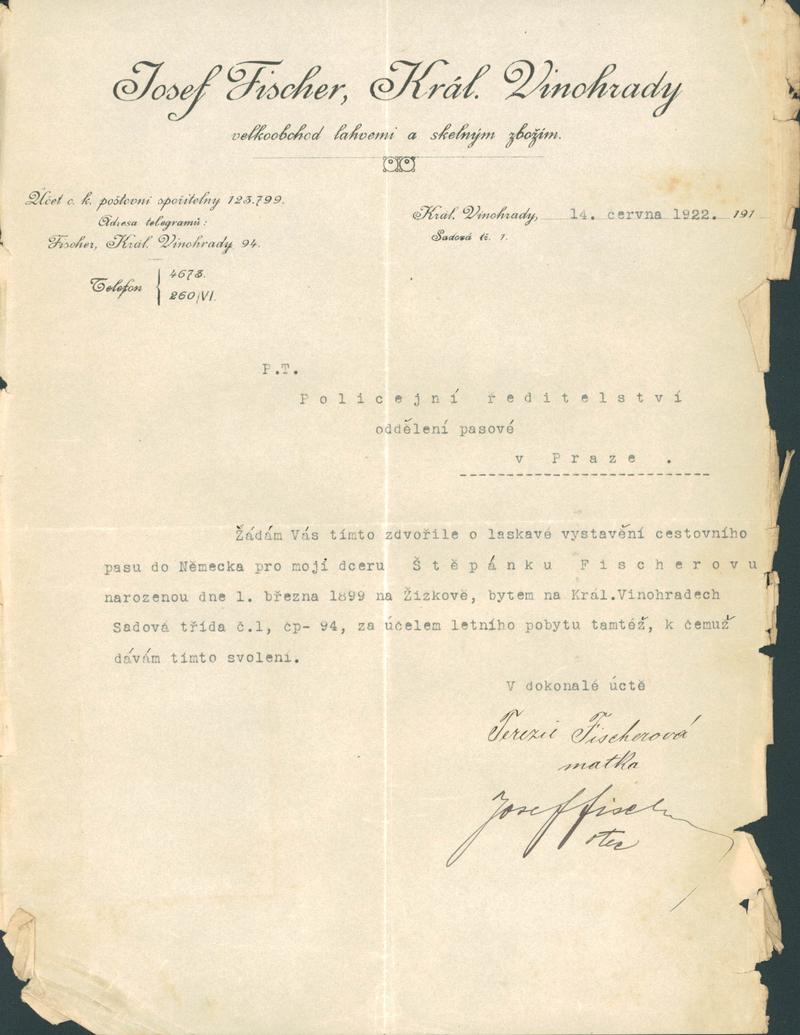 Josef Fischer, Král. Vinohrady
velkoobchod lahvemi a skelným zbožím.
Účet c. k. poštovní spořitelny 123.799.
Adresa telegramů:
Fischer, Král. Vinohrady 94.
Telefon 4673.
260/VI.
Král. Vinohrady, 14. června 1922. 191
Sadová tř. 1.
P.T.
Policejní ředitelství
oddělení pasové
v Praze.
Žádám Vás tímto zdvořile o laskavé vystavění cestovního
pasu do Německa pro mojí dceru Štěpánku Fischerovu
narozenou dne 1. března 1899 na Žižkově, bytem na Král.Vinohradech
Sadová třída č.1, čp- 94, za účelem letního pobytu tamtéž, k čemuž
dávám tímto svolení.
V dokonalé úctě
Terezie Fischerová
matka
Josef Fischer
otec